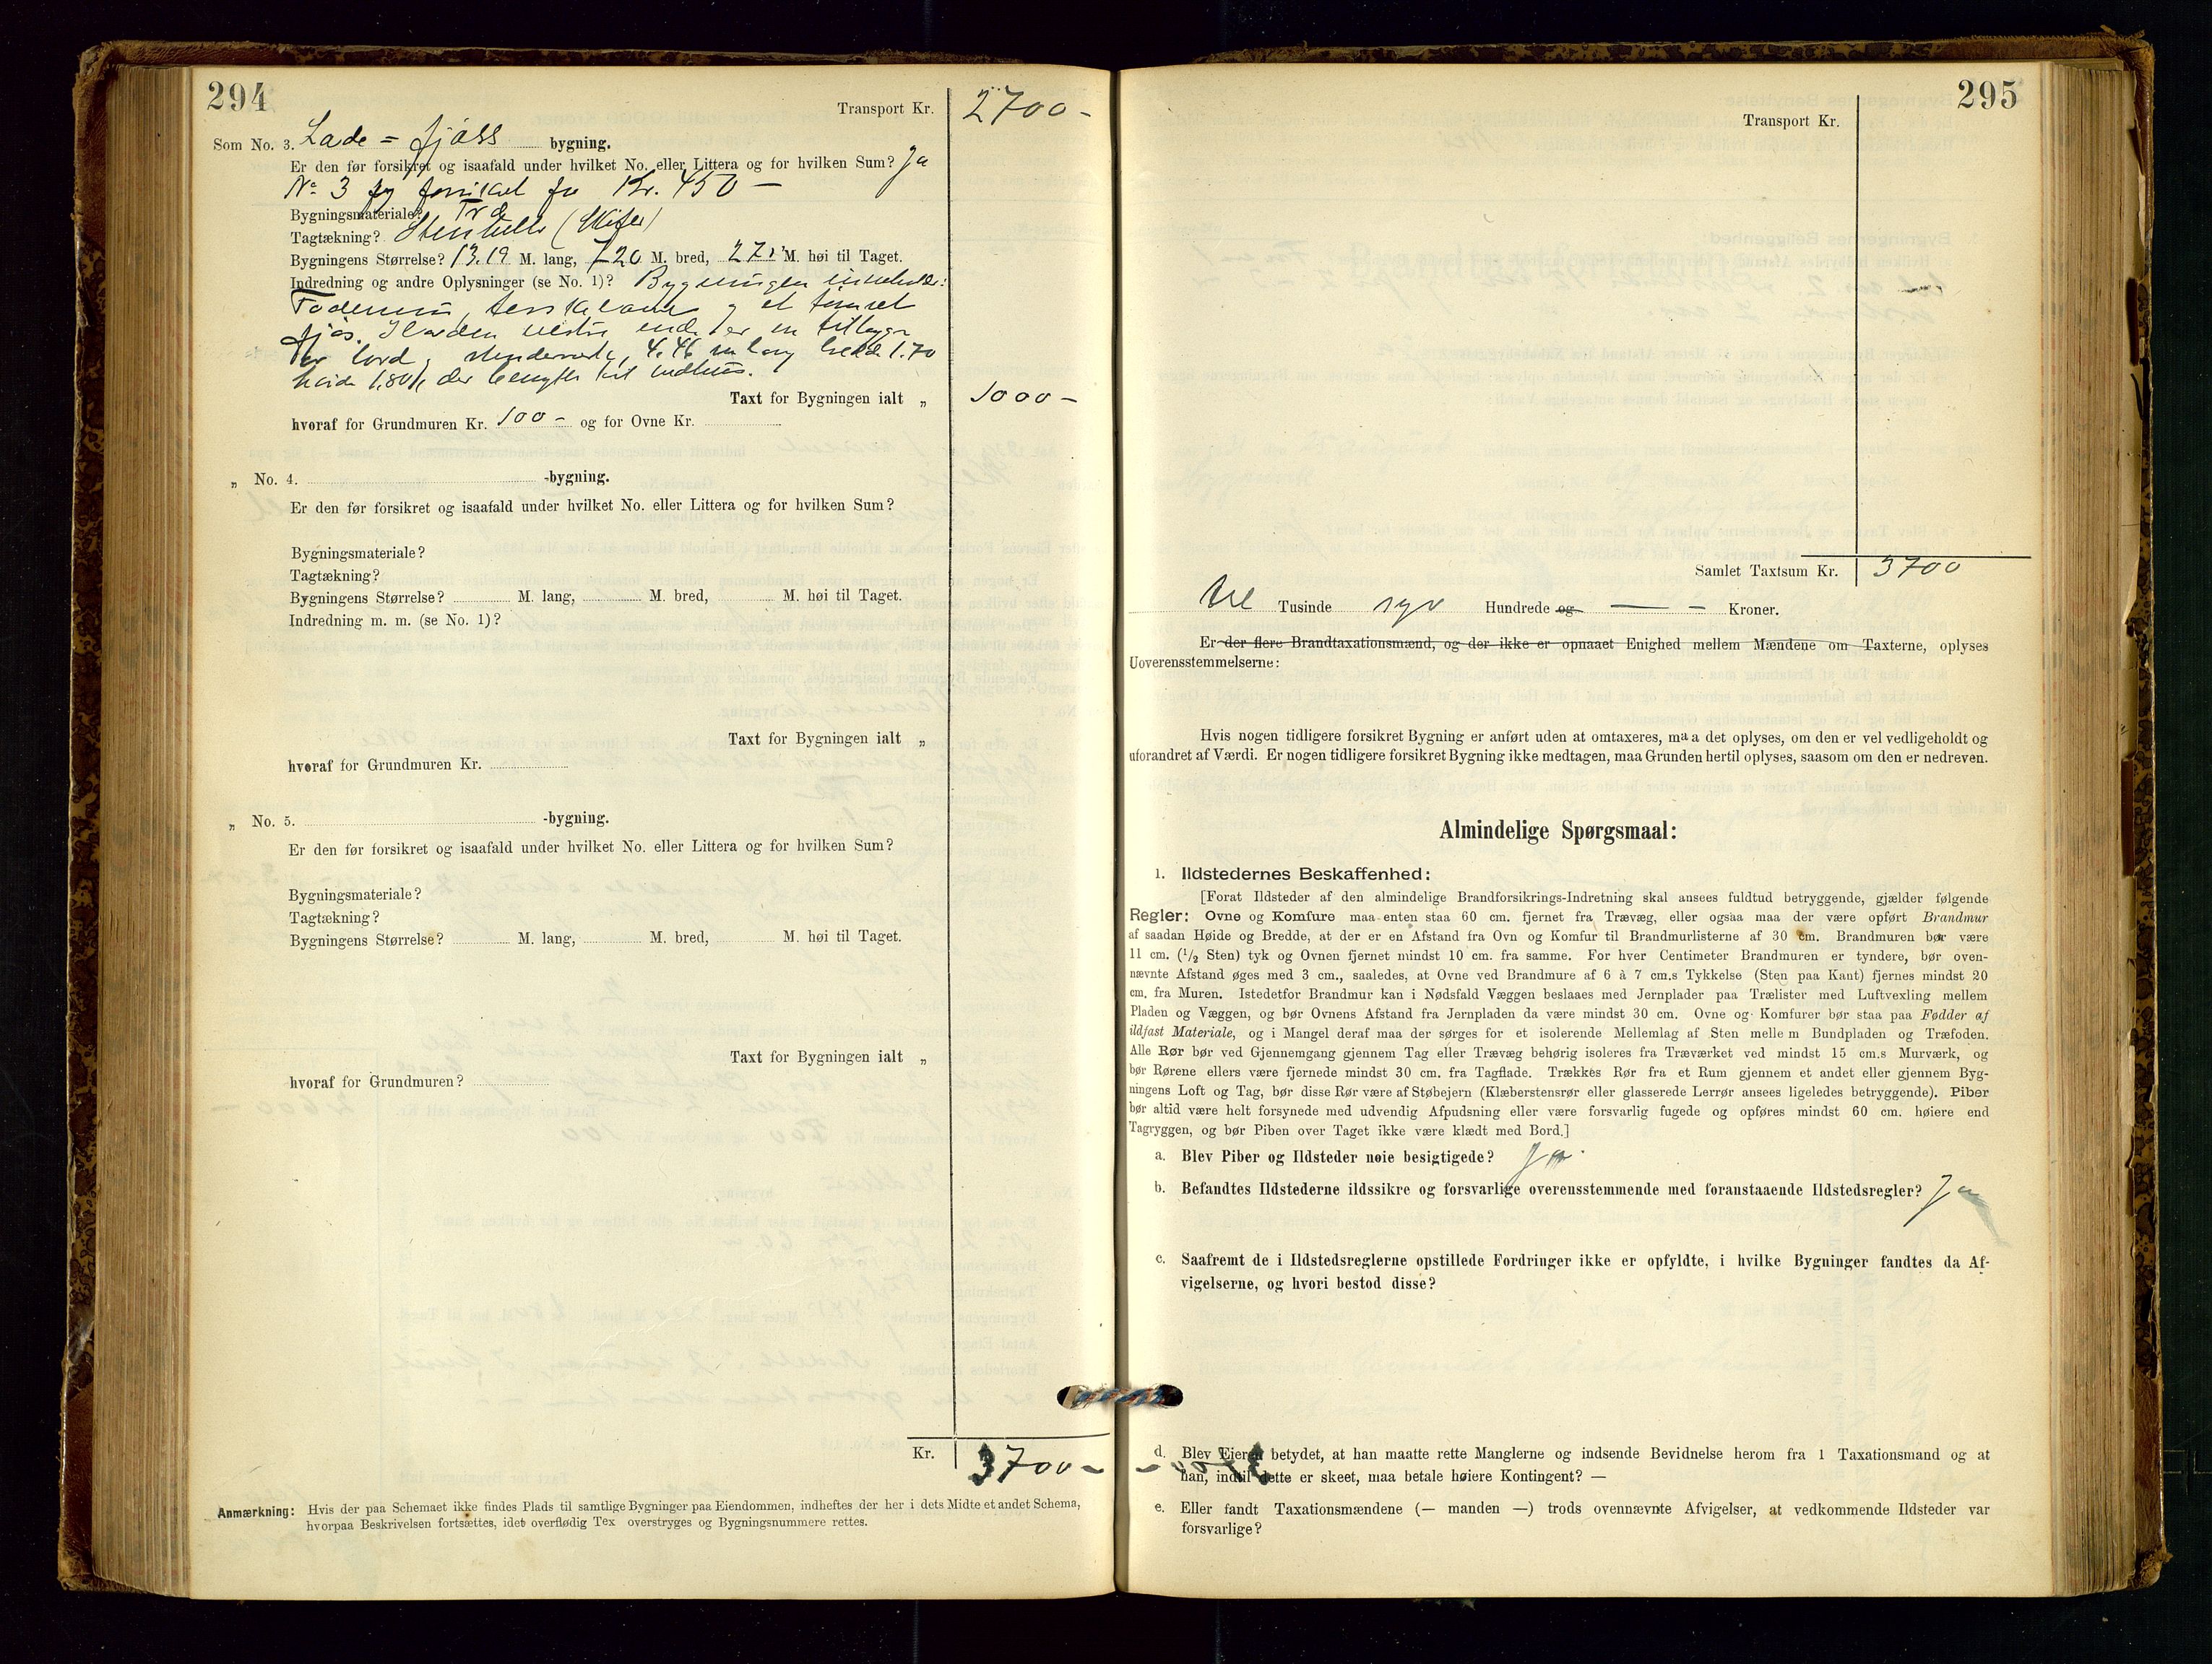 294
Transport Kr. 2700 -
Som No. 3. Lade = fjøss bygning.
Er den før forsikret og isaafald under hvilket No. eller Littera og for hvilken Sum? Ja
No 3 forsikret for Kr. 450 —
Bygningsmateriale? Træ
Tagtækning? Stenhelle (Skifer)
Bygningens Størrelse? 13.19 M. lang, 7.20 M. bred, 2.71 M. høi til Taget.
Indredning og andre Oplysninger (se No. 1)? Bygningen indeholder:
og et tømret
fjøs. vestre ende er en tilbygn
4.46 m lang bredde 1.70
høide 1,80 der benyttes til vedhus.
Taxt for Bygningen ialt „ 1000 -
hvoraf for Grundmuren Kr. 100 - og for Ovne Kr.
„ No. 4. -bygning.
Er den før forsikret og isaafald under hvilket No. eller Littera og for hvilken Sum?
Bygningsmateriale?
Tagtækning?
Bygningens Størrelse? M. lang, M. bred, M. høi til Taget.
Indredning m. m. (se No. 1)?
Taxt for Bygningen ialt „
hvoraf for Grundmuren Kr.
„ No. 5. -bygning.
Er den før forsikret og isaafald under hvilket No. eller Littera og for hvilken Sum?
Bygningsmateriale?
Tagtækning?
Bygningens Størrelse? M. lang, M. bred, M. høi til Taget.
Taxt for Bygningen ialt „
hvoraf for Grundmuren?
Kr. 3700 -
Anmærkning: Hvis der paa Schemaet ikke findes Plads til samtlige Bygninger paa Eiendommen, indheftes der her i dets Midte et andet Schema,
hvorpaa Beskrivelsen fortsættes, idet overflødig Tex overstryges og Bygningsnummere rettes.
295
Transport Kr.
Samlet Taxtsum Kr. 3700
tre Tusinde syv Hundrede og — - Kroner.
Er der flere Brandtaxationsmænd, og der ikke er opnaaet Enighed mellem Mændene om Taxterne, oplyses
Uoverensstemmelserne:
Hvis nogen tidligere forsikret Bygning er anført uden at omtaxeres, maa det oplyses, om den er vel vedligeholdt og
uforandret af Værdi. Er nogen tidligere forsikret Bygning ikke medtagen, maa Grunden hertil oplyses, saasom om den er nedreven.
Almindelige Spørgsmaal:
1. Ildstedernes Beskaffenhed:
[Forat Ildsteder af den almindelige Brandforsikrings-Indretning skal ansees fuldtud betryggende, gjælder følgende
Regler: Ovne og Komfure maa enten staa 60 cm. fjernet fra Trævæg, eller ogsaa maa der være opført Brandmur
af saadan Høide og Bredde, at der er en Afstand fra Ovn og Komfur til Brandmurlisterne af 30 cm. Brandmuren bør være
11 cm. (1/2 Sten) tyk og Ovnen fjernet mindst 10 cm. fra samme. For hver Centimeter Brandmuren er tyndere, bør oven-
nævnte Afstand øges med 3 cm., saaledes, at Ovne ved Brandmure af 6 à 7 cm.s Tykkelse (Sten paa Kant) fjernes mindst 20
cm. fra Muren. Istedetfor Brandmur kan i Nødsfald Væggen beslaaes med Jernplader paa Trælister med Luftvexling mellem
Pladen og Væggen, og bør Ovnens Afstand fra Jernpladen da være mindst 30 cm. Ovne og Komfurer bør staa paa Fødder af
ildfast Materiale, og i Mangel deraf maa der sørges for et isolerende Mellemlag af Sten melle m Bundpladen og Træfoden.
Alle Rør bør ved Gjennemgang gjennem Tag eller Trævæg behørig isoleres fra Træværket ved mindst 15 cm.s Murværk, og
bør Rørene ellers være fjernede mindst 30 cm. fra Tagflade. Trækkes Rør fra et Rum gjennem et andet eller gjennem Byg-
ningens Loft og Tag, bør disse Rør være af Støbejern (Klæberstensrør eller glasserede Lerrør ansees ligeledes betryggende). Piber
bør altid være helt forsynede med udvendig Afpudsning eller være forsvarlig fugede og opføres mindst 60 cm. høiere end
Tagryggen, og bør Piben over Taget ikke være klædt med Bord.]
a. Blev Piber og Ildsteder nøie besigtigede? Ja
b. Befandtes Ildstederne ildssikre og forsvarlige overensstemmende med foranstaaende Ildstedsregler? Ja
c. Saafremt de i Ildstedsreglerne opstillede Fordringer ikke er opfyldte, i hvilke Bygninger fandtes da Af-
vigelserne, og hvori bestod disse?
d. Blev Eieren betydet, at han maatte rette Manglerne og indsende Bevidnelse herom fra 1 Taxationsmand og at
han, indtil dette er skeet, maa betale høiere Kontingent? —
e. Eller fandt Taxationsmændene (— manden —) trods ovennævnte Afvigelser, at vedkommende Ildsteder var
forsvarlige?